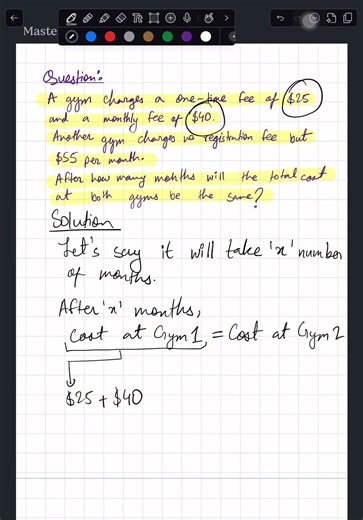 Maste
Question:
A gym charges a one-time fee of $25
and a monthly fee of $40.
Another gym charges no registration fee but
$55 per month.
After how many months will the total cost
at both gyms be the same?
Solution
Let's say it will take 'x' number
of months.
After 'x' months,
Cost at Gym 1 = Cost at Gym 2
$25 + $40